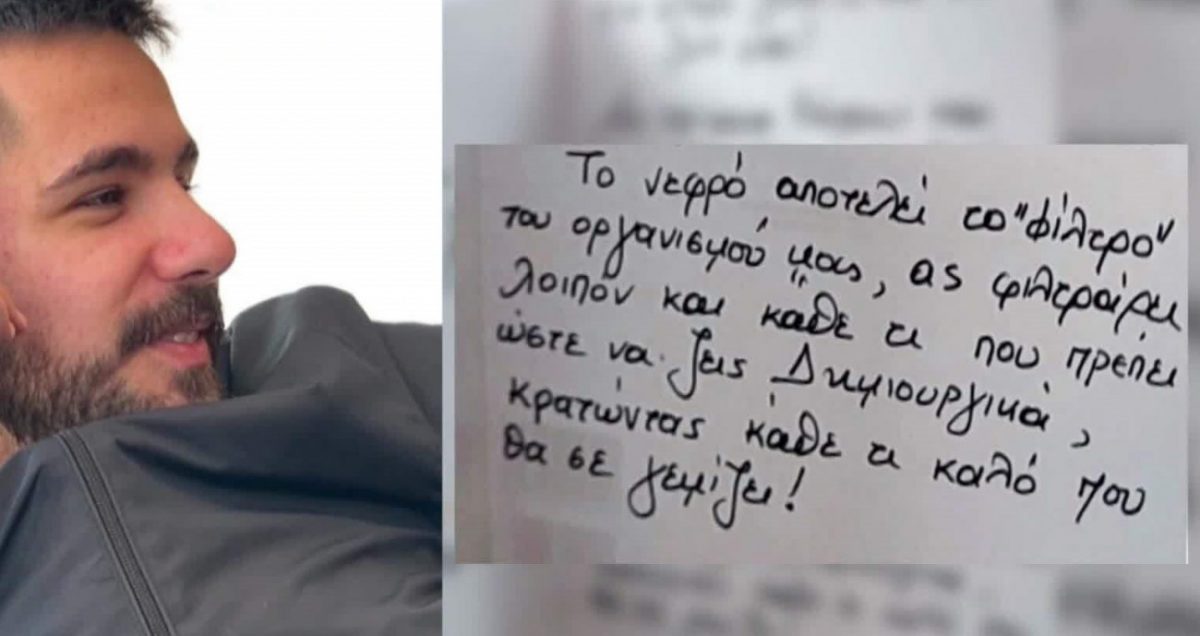 Το νεφρό αποτελεί το "φίλτρο"
του οργανισμού μας, ας φιλτράρει
λοιπόν και κάθε τι που πρέπει
ώστε να ζεις Δημιουργικά,
κρατώντας κάθε τι καλό που
θα σε γεμίζει!